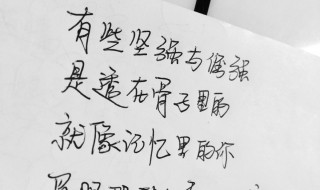 有些坚强与倔强
是透在骨子里的
就像记忆里的你